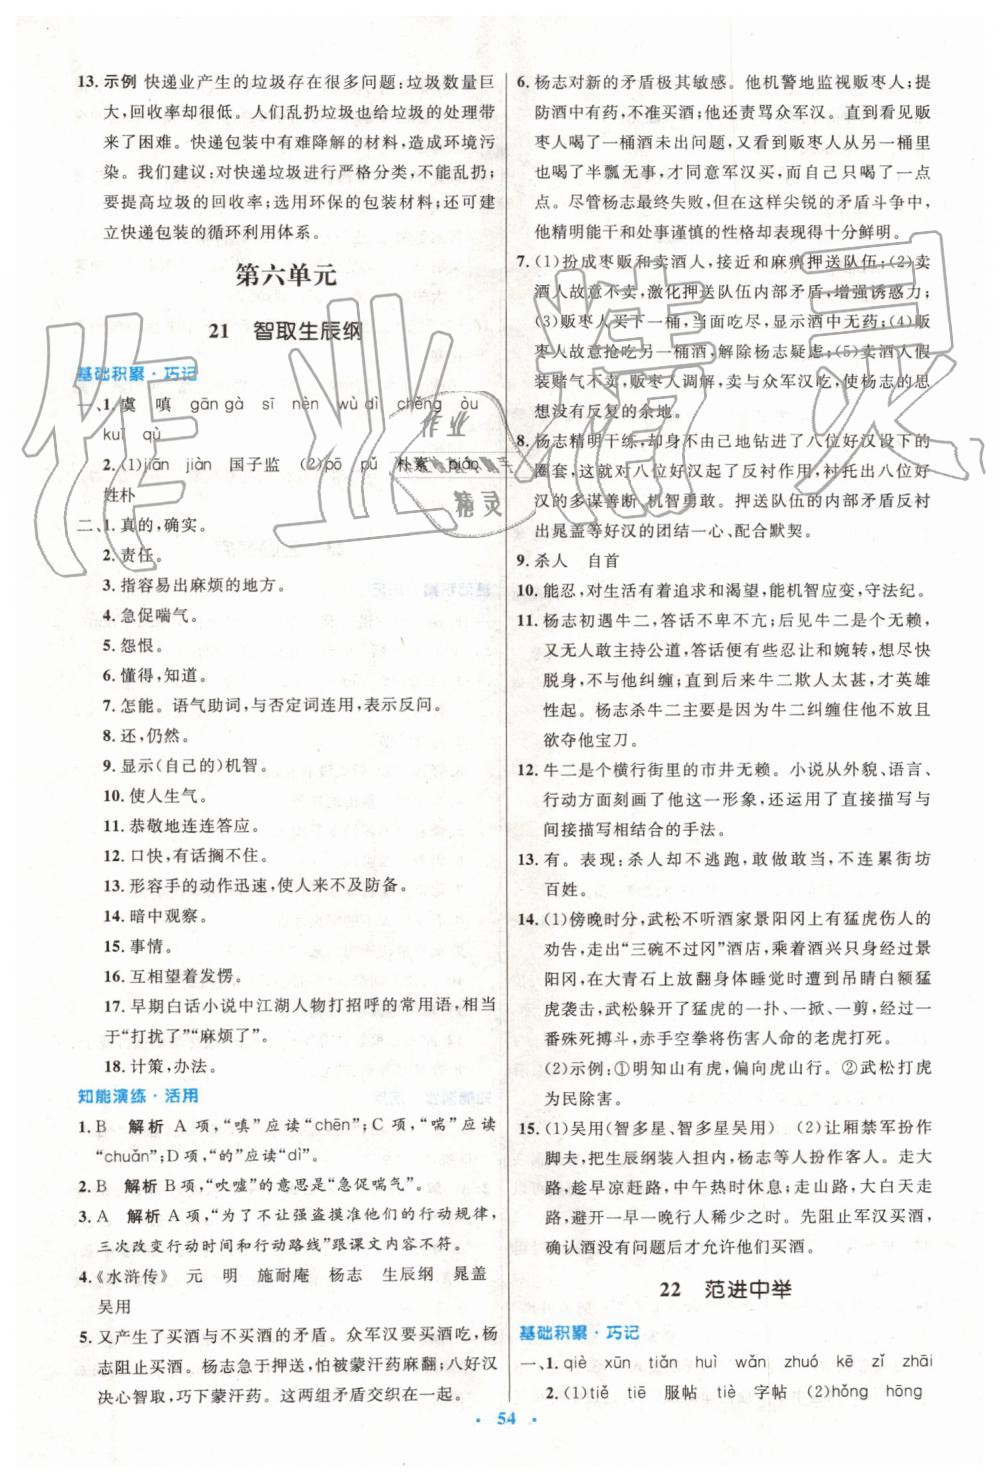 13. 示例 快递业产生的垃圾存在很多问题:垃圾数量巨
大,回收率却很低。人们乱扔垃圾给垃圾的处理带
来了困难。快递包装中有难降解的材料,造成环境污
染。我们建议:对快递垃圾进行严格分类,不能乱扔;
要提高垃圾的回收率;选用环保的包装材料;还可建
立快递包装的循环利用体系。
第六单元
21 智取生辰纲
基础积累·巧记
一、1. 虞 嗔 gān gà sī nèn wù dì chěng òu
kuī qù
2. (1)jiān jiàn 国子监 (2)pō pǔ 朴素 piáo
姓朴
二、1. 真的,确实。
2. 责任。
3. 指容易出麻烦的地方。
4. 急促喘气。
5. 怨恨。
6. 懂得,知道。
7. 怎能。语气助词,与否定词连用,表示反问。
8. 还,仍然。
9. 显示(自己的)机智。
10. 使人生气。
11. 恭敬地连连答应。
12. 口快,有话搁不住。
13. 形容手的动作迅速,使人来不及防备。
14. 暗中观察。
15. 事情。
16. 互相望着发愣。
17. 早期白话小说中江湖人物打招呼的常用语,相当
于“打扰了”“麻烦了”。
18. 计策,办法。
知能演练·活用
1. B 解析 A 项,“嗔”应读“chēn”;C 项,“喘”应读
“chuǎn”;D 项,“的”应读“dì”。
2. B 解析 B 项,“吹嘘”的意思是“急促喘气”。
3. A 解析 A 项,“为了不让强盗摸准他们的行动规律,
三次改变行动时间和行动路线”跟课文内容不符。
4. 《水浒传》 元 明 施耐庵 杨志 生辰纲 晁盖
吴用
5. 又产生了买酒与不买酒的矛盾。众军汉要买酒吃,杨
志阻止买酒。杨志急于押送,怕被蒙汗药麻翻;八好汉
决心智取,巧下蒙汗药。这两组矛盾交织在一起。
6. 杨志对新的矛盾极其敏感。他机警地监视贩枣人;提
防酒中有药,不准买酒;他还责骂众军汉。直到看见贩
枣人买了一桶酒未出问题,又看到贩枣人从另一桶里
也喝了半瓢无事,才同意军汉买,自己也只喝了一点
点。尽管杨志最终失败,但在这样尖锐的矛盾斗争中,
他精明能干和处事谨慎的性格却表现得十分鲜明。
7. (1)扮成枣贩和卖酒人,接近和麻痹押送队伍;(2)卖
酒人故意不卖,激化押送队伍内部矛盾,增强诱惑力;
(3)贩枣人买下一桶,当面吃尽,显示酒中无药;(4)贩
枣人故意抢吃另一桶酒,解除杨志疑虑;(5)卖酒人假
装赌气不卖,贩枣人调解,最后卖与众军汉,使杨志的思
想没有反复的余地。
8. 杨志精明干练,却身不由己地钻进了八位好汉设下的
圈套,这对八位好汉起了反衬作用,衬托出八位好
汉的多谋善断、机智勇敢。押送队伍的内部矛盾反衬
出晁盖等好汉的团结一心、配合默契。
9. 杀人 自首
10. 能忍,对生活有着追求和渴望,能机智应变,守法纪。
11. 杨志初遇牛二,答话不卑不亢;后见牛二是个无赖,
又无人敢主持公道,答话便有些忍让和婉转,想快快
脱身,不与他纠缠;直到后来牛二欺人太甚,才英雄
性起。杨志杀牛二主要是因为牛二纠缠住他不放且
欲夺他宝刀。
12. 牛二是个横行街里的市井无赖。小说从外貌、语言、
行动方面刻画了他这一形象,还运用了直接描写与
间接描写相结合的手法。
13. 有。表现:杀人却不逃跑,敢做敢当,不连累街坊
百姓。
14. (1)傍晚时分,武松不听酒家景阳冈上有猛虎伤人的
劝告,走出“三碗不过冈”酒店,乘着酒兴只身经过景
阳冈,在大青石上放翻身体睡觉时遭到吊睛白额猛
虎袭击,武松躲开了猛虎的一扑、一掀、一剪,经过一
番殊死搏斗,赤手空拳将伤害人命的老虎打死。
(2)示例:①明知山有虎,偏向虎山行。②武松打虎
为民除害。
15. (1)吴用(智多星、智多星吴用) (2)让厢禁军扮作
脚夫,把生辰纲装入担内,杨志等人扮作客人。走大
路,趁早凉赶路,中午热时休息;走山路,大白天走
路,避开一早一晚行人稀少之时。先阻止军汉买酒,
确认酒没有问题后才允许他们买酒。
22 范进中举
基础积累·巧记
一、1. qiè xūn tiǎn huì wǎn zhuó kē zǐ zhāi
2. (1)tiě tiē 服帖 tiè 字帖 (2)hǒng hōng
· 54 ·
作业精灵
作业
精灵